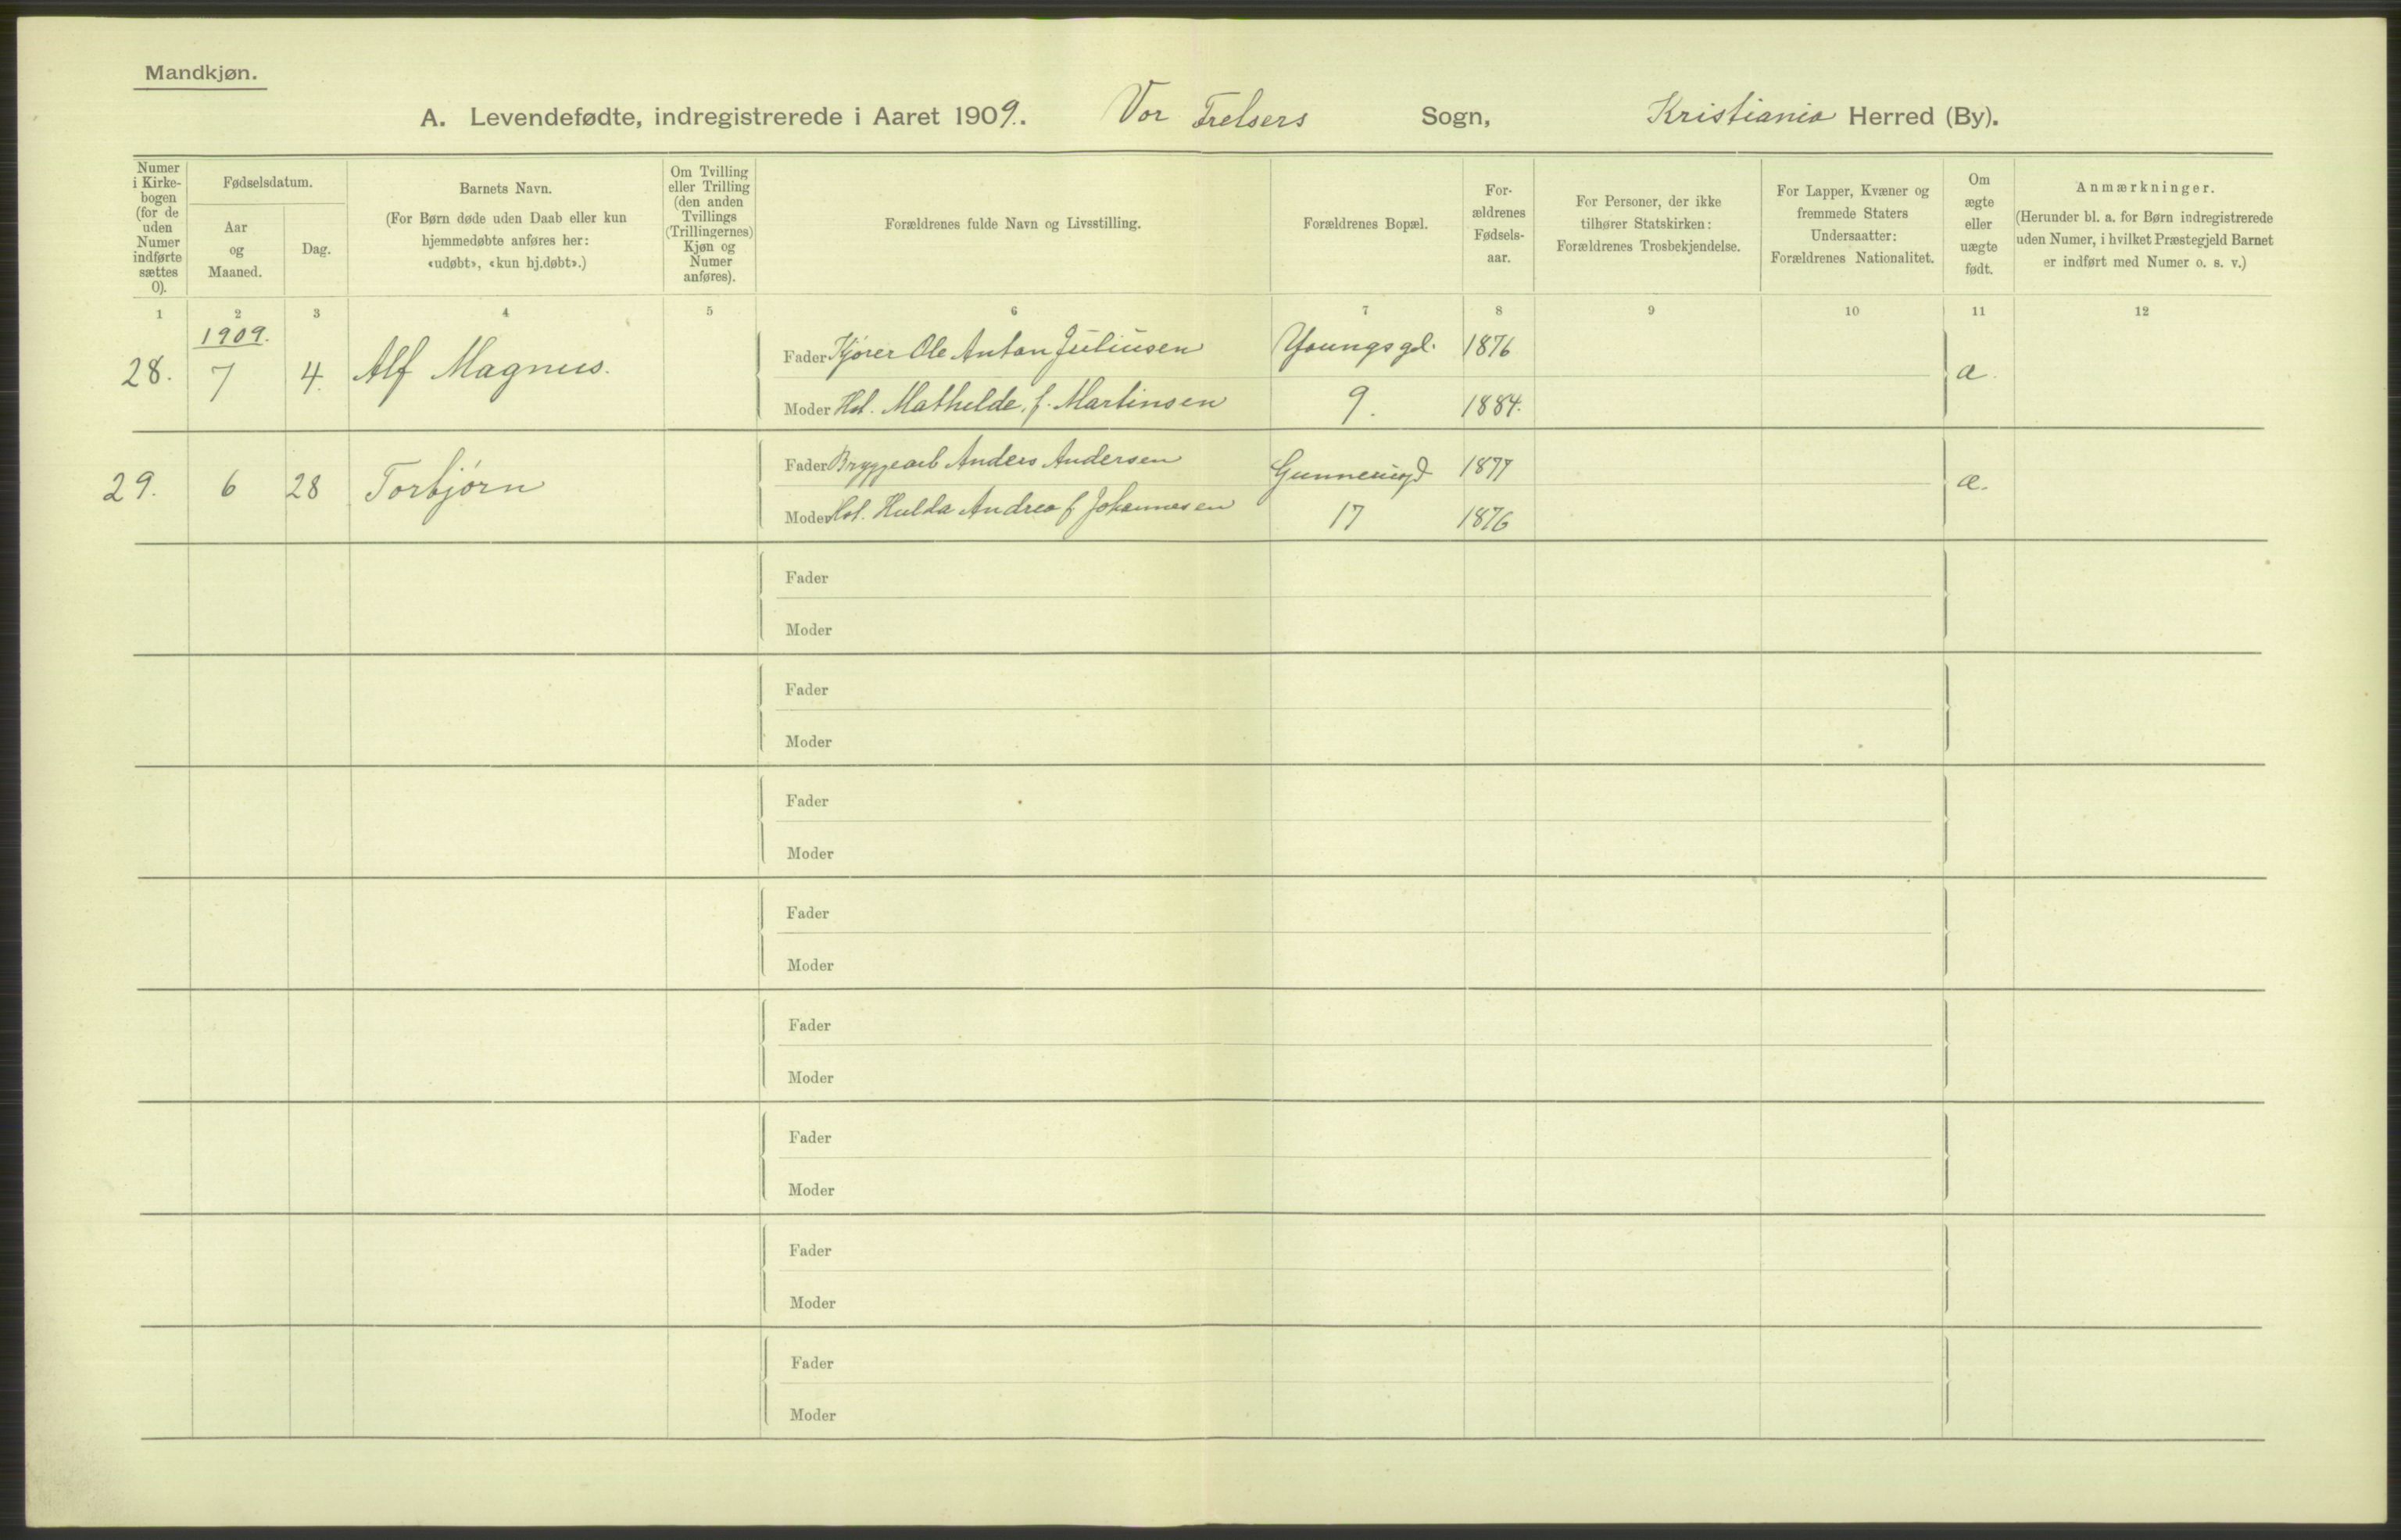 Mandkjøn.
A. Levendefødte, indregistrerede i Aaret 1909. Vor Frelsers Sogn, Kristiania Herred (By).
Numer i Kirke-bogen (for de uden Numer indførte sættes 0).
Fødselsdatum.
Aar og Maaned.
Dag.
Barnets Navn.
(For Børn døde uden Daab eller kun
hjemmedøbte anføres her:
«udøbt», «kun hj.døbt».)
Om Tvilling
eller Trilling
(den anden
Tvillings
(Trillingernes)
Kjøn og
Numer
anføres).
Forældrenes fulde Navn og Livsstilling.
Forældrenes Bopæl.
For-
ældrenes
Fødsels-
aar.
For Personer, der ikke
tilhører Statskirken:
Forældrenes Trosbekjendelse.
For Lapper, Kvæner og
fremmede Staters
Undersaatter:
Forældrenes Nationalitet.
Om
ægte
eller
uægte
født.
Anmærkninger.
(Herunder bl. a. for Børn indregistrerede
uden Numer, i hvilket Præstegjeld Barnet
er indført med Numer o. s. v.)
1 2 3 4 5 6 7 8 9 10 11 12
1909.
28. 7 4. Alf Magnus. Fader Kjører Ole Anton Juliusen Youngsgd. 1876 æ.
Moder Hst. Mathilde, f. Martinsen 9. 1884.
29. 6 28 Torbjørn Fader Bryggearb Anders Andersen 1877 æ.
Moder Hst. Hulda Andrea f Johannesen 17 1876
Fader
Moder
Fader
Moder
Fader
Moder
Fader
Moder
Fader
Moder
Fader
Moder
Fader
Moder
Fader
Moder